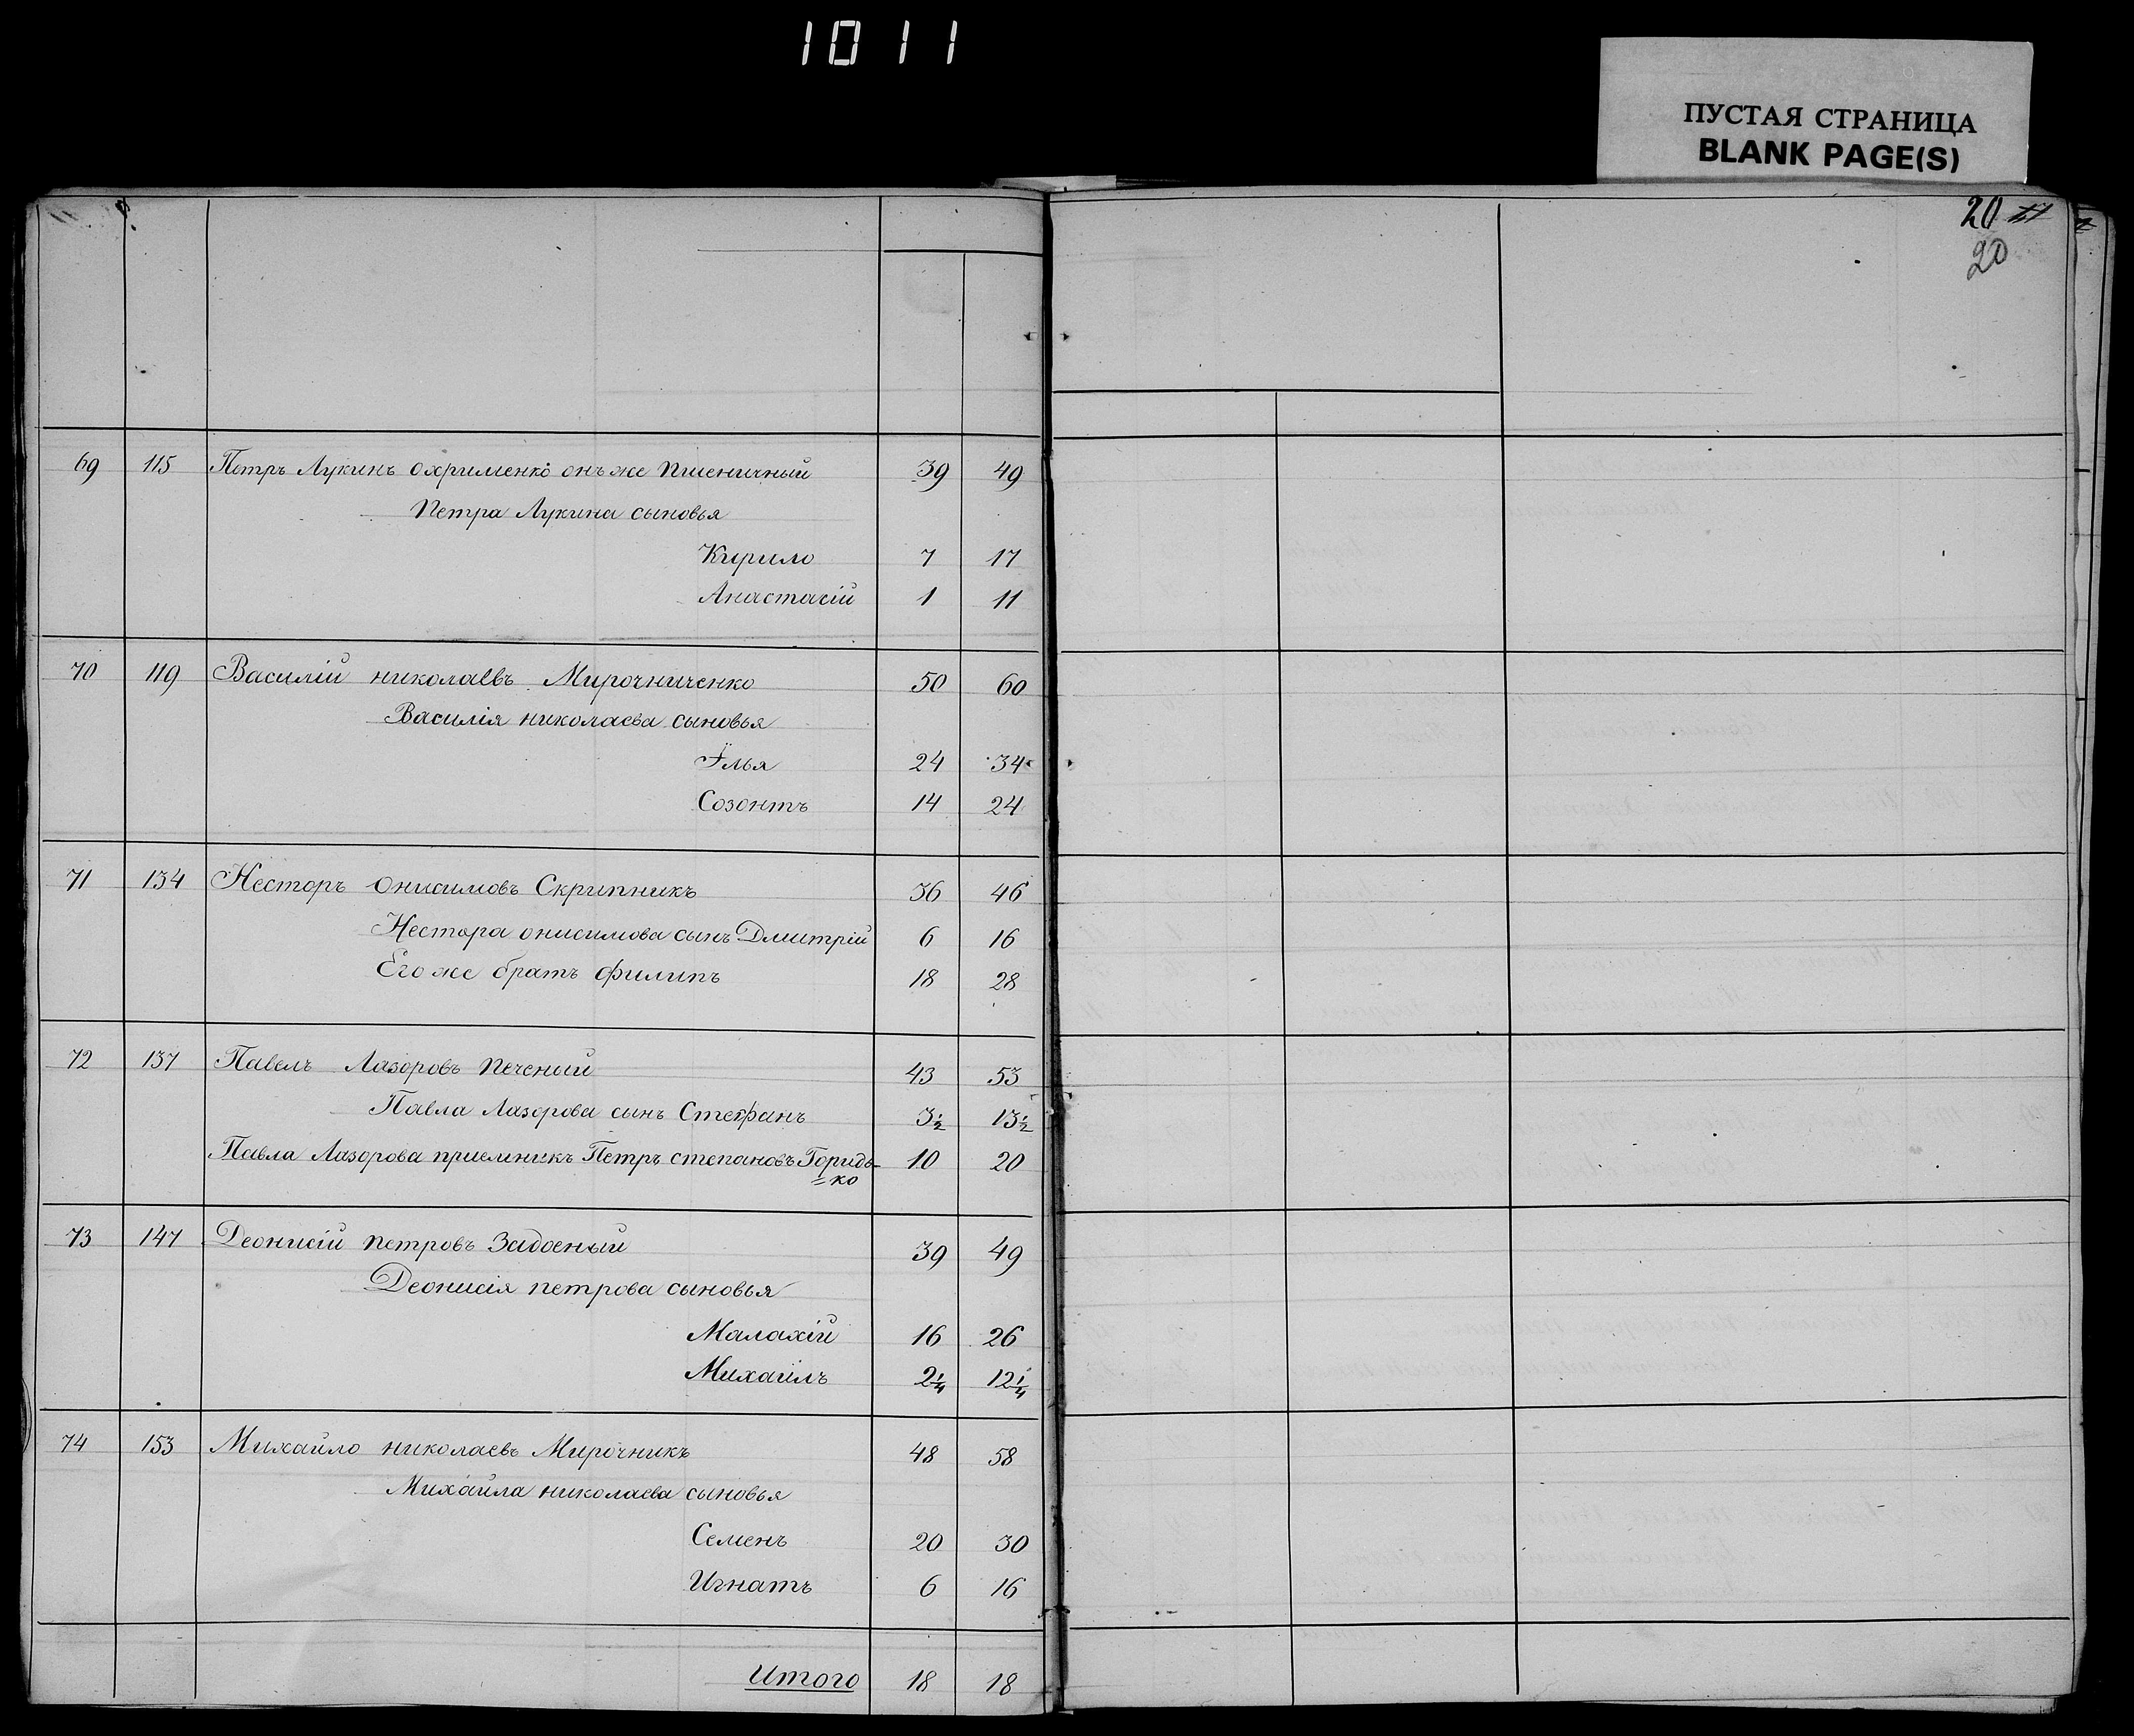 1011
ПУСТАЯ СТРАНИЦА
BLANK PAGE(S)
20
20
69 115 Петръ Лукинъ Охрименко онъ же Пшеничный 39 49
Петра Лукина сыновья
Кирило 7 17
Анастасій 1 11
70 119 Василій николаевъ Мирочниченко 50 60
Василія николаева сыновья
Илья 24 34
Созонтъ 14 24
71 134 Несторъ Онисимовъ Скрипникъ 36 46
Нестора онисимова сынъ Дмитрій 6 16
Его же братъ филипъ 18 28
72 137 Павелъ Лазоровъ Печеный 43 53
Павла Лазорова сынъ Стефанъ 3½ 13½
Павла Лазорова приемникъ Петръ степановъ Горидь- 10 20
=ко
73 147 Деонисій петровъ Задоеный 39 49
Деонисія петрова сыновья
Малахій 16 26
Михайлъ 2¼ 12¼
74 153 Михайло николаевъ Мирочникъ 48 58
Михайла николаева сыновья
Семенъ 20 30
Игнатъ 6 16
Итого 18 18